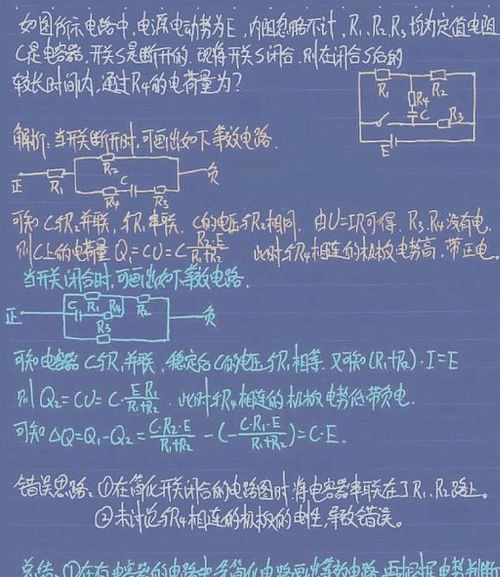 如图所示电路中,电源电动势为E,内阻忽略不计,R₁、R₂、R₃均为定值电阻
C是电容器,开关S是断开的.现将开关S闭合,则在闭合S后的
较长时间内,通过R₄的电荷量为?
R₁ R₂
R₄
C R₃
E
解析:当开关断开时,可画出如下等效电路.
R₂
正 R₁ C 负
R₄ R₃
可知C与R₂并联,与R₁串联. C的电压与R₂相同. 由U=IR可得. R₃、R₄没有电.
则C上的电荷量 Q₁=CU=C R₂·E/(R₁+R₂) 此时与R₄相连的极板电势高,带正电.
当开关闭合时,可画出如下等效电路.
C R₁ R₄ R₂
正 负
R₃
可知电容器C与R₁并联,稳定后C的电压与R₁相等.又可知(R₁+R₂)·I=E
则Q₂=CU=C·E·R₁/(R₁+R₂). 此时与R₄相连的极板电势低带负电.
可知ΔQ=Q₁-Q₂=C·R₂·E/(R₁+R₂)-(-C·R₁·E/(R₁+R₂))=C·E.
错误思路:①在简化开关闭合的电路图时,将电容器串联在了R₁、R₂路上。
②未讨论与R₄相连的极板的电性,导致错误。
总结:①在有电容器的电路中